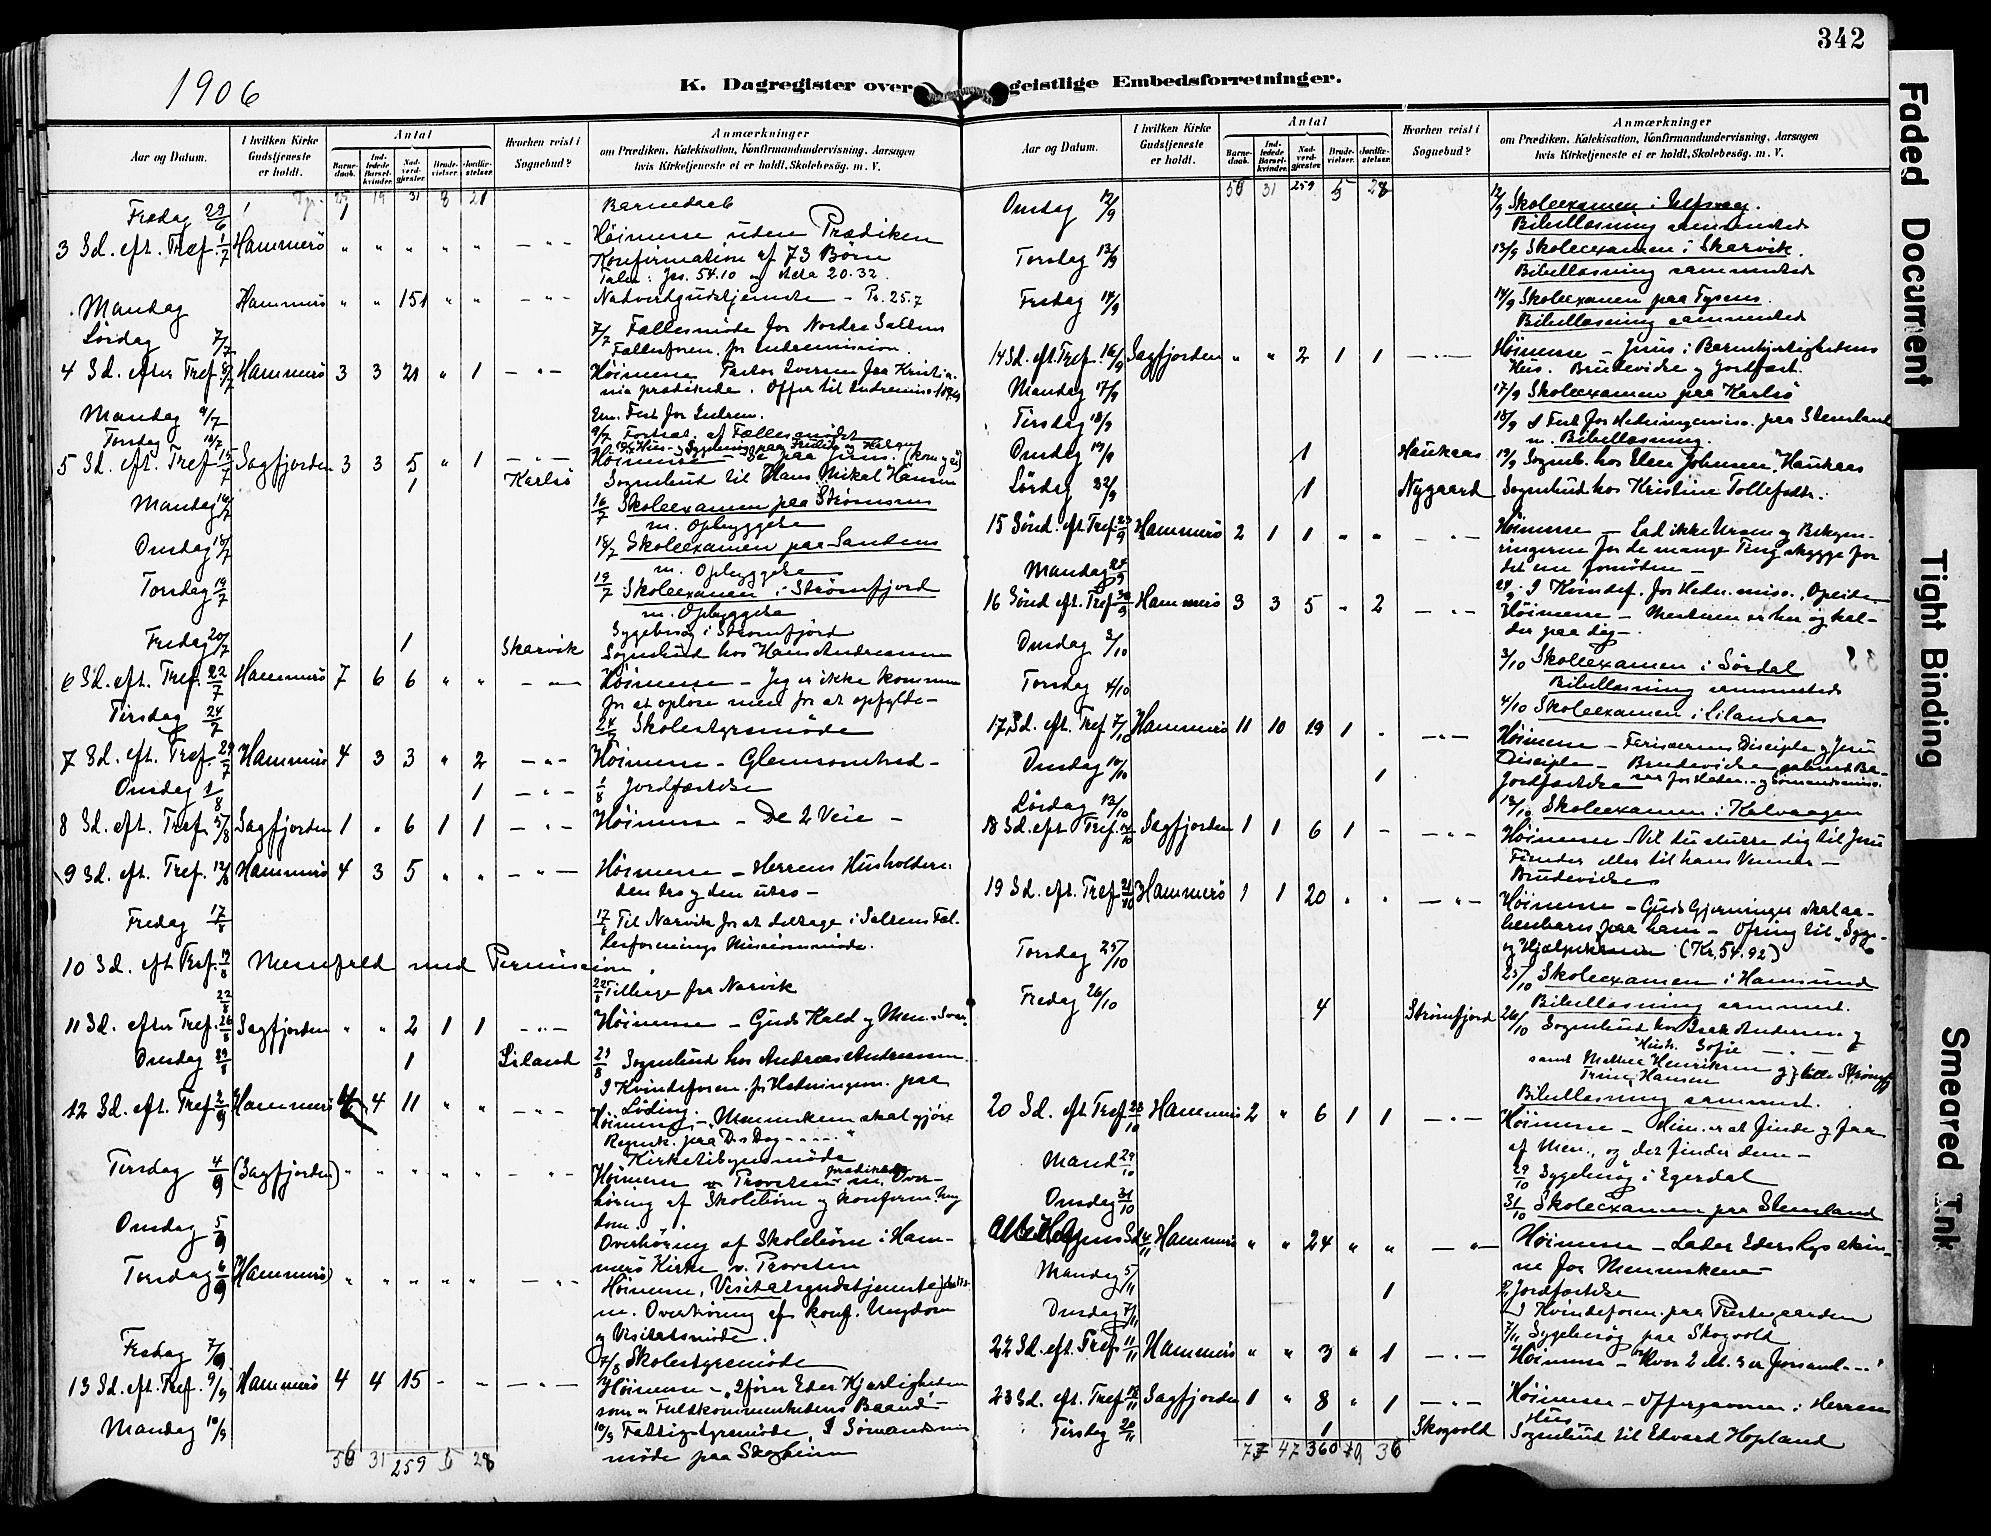 342
1906
K. Dagregister over geistlige Embedsforretninger.
Aar og Datum.
I hvilken Kirke Gudstjeneste er holdt.
Antal
Barne-daab.
Ind-ledede Barsel-kvinder.
Nad-verd-gjester.
Brude-vielser.
Jordfæ-stelser.
Hvorhen reist i Sognebud?
Anmærkninger
om Prædiken, Katekisation, Konfirmandundervisning, Aarsagen
hvis Kirketjeneste ei er holdt, Skolebesög. m. V.
Fredag 29/6 1 Barnedaab
3 Sd. eft. Tref. 1/7 Hammerö " " " " " Høimesse uden Prædiken
Konfirmation af 73 Børn
Taler: Jes. 54.10 og Acta 20.32.
Mandag Hammerö " " 151 " " Nadverdgudstjeneste - Ps. 25.7
Lørdag 7/7 7/7 Fællesmøde for Nordre Saltens
Fællesforen. for Indremission.
4 Sd. efter Tref. 8/7 Hammerö 3 3 21 " 1 Høimesse Pastor Iversen fra Kristia-
nia prædikede. Offer til Indremis.
Mandag 9/7 Em. Fest for Indrem.
9/7 Fortsat. af Fællesmødet
Torsdag
5 Sd. eft. Tref 15/7 Sagfjorden 3 3 5 " 1 Høimesse - Se paa Jesus. (kom og se)
1 Karlsö Sognebud til Hans Mikal Hansen
Mandag 16/7 16/7 Skoleexamen paa Strømsnes
m. Opbyggelse
Onsdag 18/7 18/7 Skoleexamen paa Sandnes
m. Opbyggelse
Torsdag 19/7 19/7 Skoleexamen i Strømfjord
m. Opbyggelse
Sygebesøg i Strømfjord
Fredag 20/7 1 Skarvik Sognebud hos Hans Andreassen
6 Sd. eft. Tref. 22/7 Hammerö 7 6 6 " " Høimesse - Jeg er ikke kommen
for at opløse men for at opfylde -
Tirsdag 24/7 24/7 Skolestyremøde
7 Sd. eft. Tref 29/7 Hammerö 4 3 3 " 2 Høimesse - Glemsomhed -
Onsdag 1/8 1 1/8 Jordfæstelse
8 Sd. eft. Tref. 5/8 Sagfjorden 1 " 6 1 1 Høimesse - De 2 Veie -
9 Sd. eft. Tref. 12/8 Hammerö 4 3 5 " " Høimesse - Herrens Husholdere:
den tro og den utro -
Fredag 17/8 17/8 Til Narvik for at deltage i Saltens Fæl-
lesforenings Missionsmøde.
10 Sd. eft Tref. 19/8 Messefald med Permission.
22/8 22/8 Tilbage fra Narvik
11 Sd. efter Tref. 26/8 Sagfjorden " " 2 1 1 Høimesse - Guds Kald og Men. Svar
Onsdag 29/8 1 Liland 29/8 Sognebud hos Andreas Andreassen
I Kvindeforen. for Hedningem. paa
Løding.
12 Sd. eft. Tref 2/9 Hammerö 4 4 11 " " Høimesse - Mennesken skal gjøre
Regnsk. paa D.s Dag - - - -
Kirketilsynsmøde
Tirsdag 4/9 (Sagfjorden) " " " " " Høimesse v. Provsten m. Over-
prædikede
høring af Skolebørn og konfirm. Ung
dom.
Onsdag 5/9 Overhøring af Skolebørn i Ham-
merö Kirke v. Provsten
Torsdag 6/9 (Hammerö) " " " " " Høimesse, Visitatsgudstjeneste
m. Overhøring af konf. Ungdom
og Visitatsmøde.
Fredag 7/9 Skolestyremøde
13 Sd. eft. Tref. 9/9 Hammerö 4 4 15 - - Høimesse - Iføres Eder Kjærligheden
som er Fuldkommenhedens Baand -
Mandag 10/9 10/9 Fattigstyremøde, I Sømandsm
møde paa Skogheim
56 31 259 28
Aar og Datum.
I hvilken Kirke Gudstjeneste er holdt.
Antal
Barne-daab.
Ind-ledede Barsel-kvinder.
Nad-verd-gjester.
Brude-vielser.
Jordfæ-stelser.
Hvorhen reist i Sognebud?
Anmærkninger
om Prædiken, Katekisation, Konfirmandundervisning, Aarsagen
hvis Kirketjeneste ei er holdt, Skolebesög. m. V.
56 31 259 5 28
Onsdag 12/9 12/9 Skoleexamen i Ulfsvaag.
Bibellæsning sammested
Torsdag 13/9 13/9 Skoleexamen i Skarvik.
Bibellæsning sammested
Fredag 14/9 14/9 Skoleexamen paa Tysnes.
Bibellæsning sammested
14 Sd. eft. Tref. 16/9 Sagfjorden " " 2 1 1 Høimesse - Jesus i Barmhjertighedens
Hus. Brudevielse og Jordfæst.
Mandag 17/9 17/9 Skoleexamen paa Karlsö
Tirsdag 18/9 18/9 I Fest for Hedningemiss. paa Stensland
m. Bibellæsning.
Onsdag 19/9 1 Haukaas 19/9 Sogneb. hos Elen Johnsen, Haukaas
Lørdag 22/9 1 Nygaard Sognebud hos Kristine Tollefsdtr.
15 Sønd. eft. Tref 23/9 Hammerö 2 1 1 " " Høimesse - Lad ikke Uroen og Bekym-
ringerne for de mange Ting skygge for
det ene fornødne -
Mandag 24/9 24/9 I Kvindef. for Hedn. miss., Opeide
16 Sønd eft. Tref 30/9 Hammerö 3 3 5 " 2 Høimesse - Mesteren er her og kal-
der paa dig -
Onsdag 3/10 3/10 Skoleexamen i Sørdal
Bibellæsning sammesteds
Torsdag 4/10 4/10 Skoleexamen i Lilandsaas
17 Sd. eft. Tref. 7/10 Hammerö 11 10 19 1 - Høimesse - Farisæernes Disciple og Jesu
Disciple - Brudevielse
Onsdag 10/10 1 Jordfæstelse
Lørdag 13/10 13/10 Skoleexamen i Kalvaagen
18 Sd. eft Tref. 14/10 Sagfjorden 1 1 6 1 - Høimesse - Vil du slutte dig til Jesu
Fiender eller til hans Venner -
Brudevielse
19 Sd. eft. Tref. 21/10 Hammerö 1 1 20 " " Høimesse - Guds Gjerninger skal aa-
benbares paa ham - Ofring til "Syge-
og Hjælpekassen" (Kr. 54.92)
Torsdag 25/10 25/10 Skoleexamen i Hamsund
Bibellæsning sammest.
Fredag 26/10 4 Strømfjord 26/10 Sognebud hos Andersen og
Hust. Sofie
samt Henriksen og
Trine Hansen
Bibellæsning sammest.
20 Sd. eft Tref 28/10 Hammerö 2 " 6 1 1 Høimesse - Him. er at finde og faa
af Men., og det finder dem -
Mand 29/10 29/10 Sygebesøg i Egerdal
Onsdag 31/10 31/10 Skoleexamen paa Stensland
Alle Helgens Sd 4/11 Hammerö " " 24 " " Høimesse - Lader Eders Lys skin-
ne for Menneskene -
Mandag 5/11 1 Jordfæstelse
I Kvindeforen. paa Prestegaarden
Onsdag 7/11 7/11 Sygebesøg paa Skogvold
22 Sd. eft. Tref. 11/11 Hammerö " " 3 " 1 Høimesse - Hvor 2 el. 3 er forsaml - - "
23 Sd. eft. Tref. 18/11 Sagfjorden 1 " 8 " 1 Høimesse - Offergaven i Herrens
Hus -
Tirsdag 20/11 1 Skogvold Sognebud til Edvard Hopland
77 47 360 10 36
Faded Document
Tight Binding
Smeared Ink